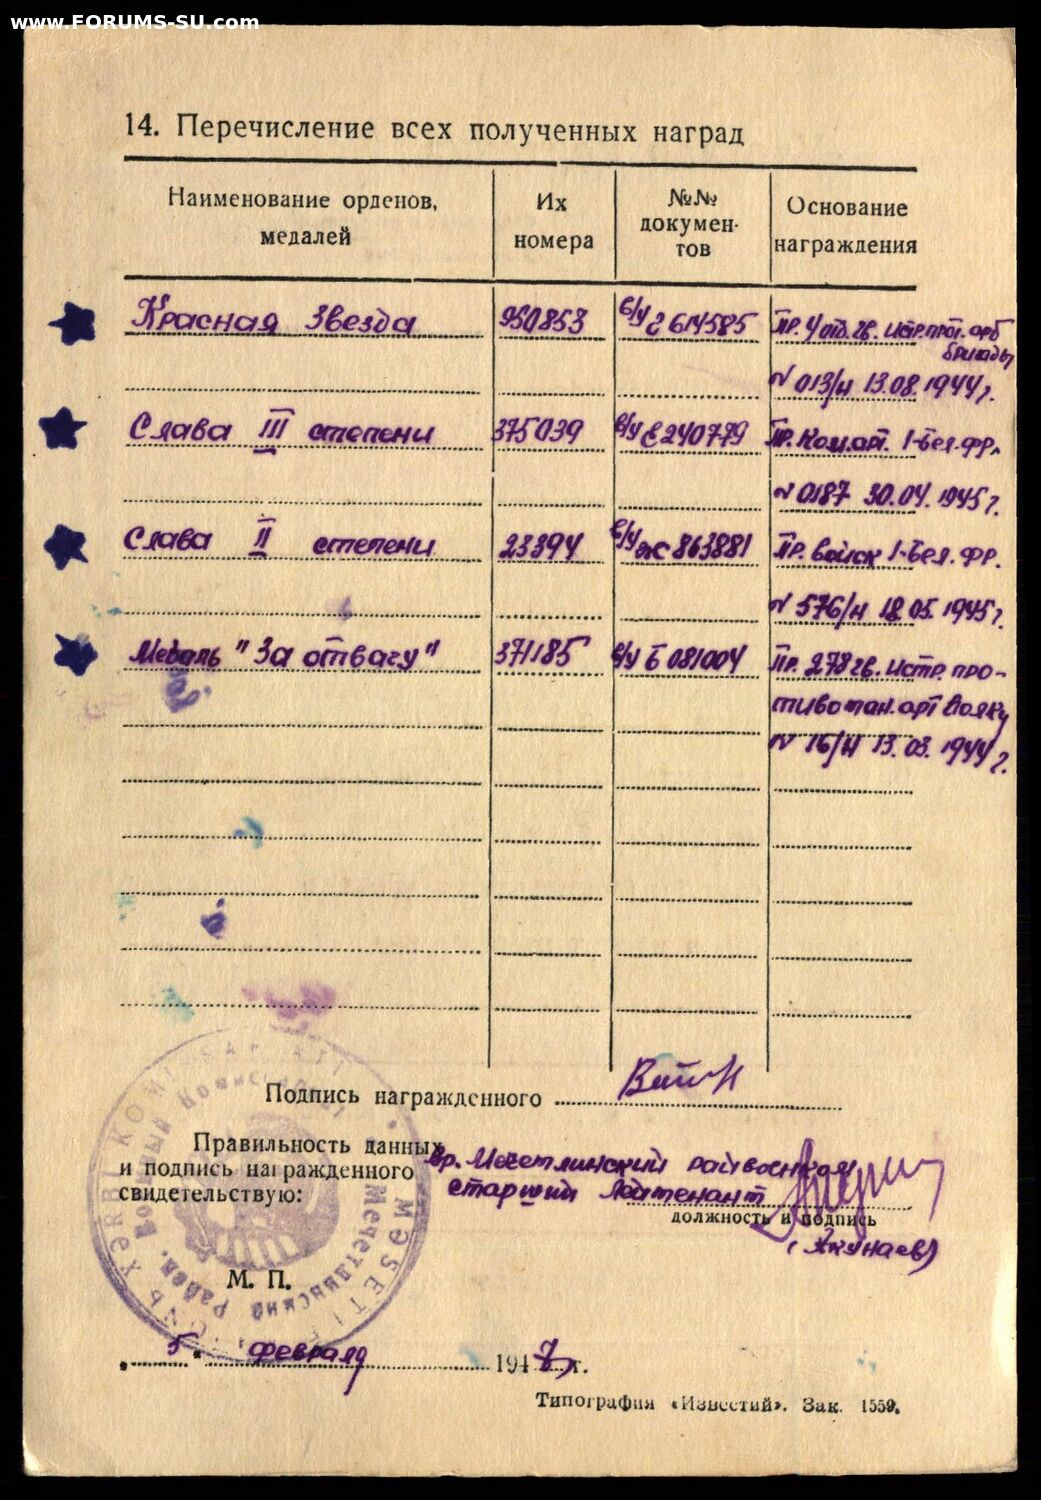 www.FORUMS-SU.com
14. Перечисление всех полученных наград
Наименование орденов, медалей
Их номера
№№ докумен- тов
Основание награждения
Красная Звезда 950853 в/у Е 614585 Пр. 4 отд. гв. истр. прот. арт бригады
№ 013/н 13.08.1944 г.
Слава III степени 375039 в/у Е 240779 Пр. Ком. арт. 1-Бел. фр.
№ 0187 30.04.1945 г.
Слава II степени 23394 в/у Ж 863881 Пр. войск 1-Бел. фр.
№ 576/н 18.05.1945 г.
Медаль "За отвагу" 371185 в/у Б 081004 Пр. 278 гв. истр. про-
тивотан. арт полку
№ 16/н 13.03.1944 г.
Подпись награжденного
Правильность данных
и подпись награжденного
свидетельствую:
Вр. Мечетлинский райвоенком
старший лейтенант
должность и подпись
(Акунаев)
М. П.
Военный Комиссариат
Мечетлинский Район.
„ 5 " февраля 1947 г.
Типография «Известий». Зак. 1559.